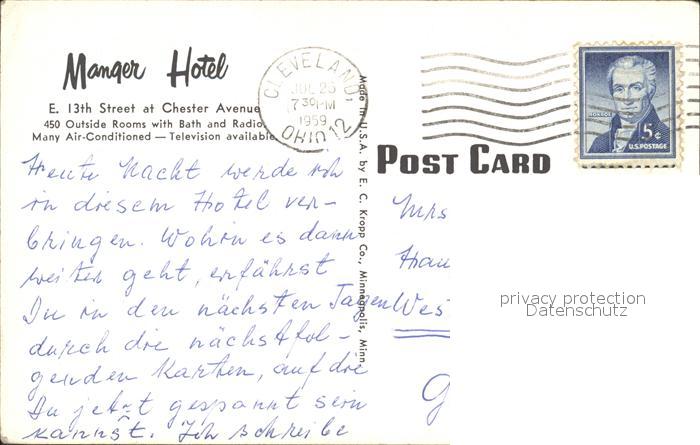 Manger Hotel
E. 13th Street at Chester Avenue
450 Outside Rooms with Bath and Radio
Many Air-Conditioned — Television available
CLEVELAND,
JUL 26
7 30 PM
1959
OHIO 12
MONROE
5¢
U.S. POSTAGE
Made in U.S.A. by E. C. Kropp Co., Minneapolis, Minn.
POST CARD
Heute Nacht werde ich
in diesem Hotel ver-
bringen. Wohin es dann
weiter geht, erfährst
Du in den nächsten Tagen
durch die nächstfol-
genden Karten, auf die
Du jetzt gespannt sein
kannst. Ich schreibe
Mrs
Hau
Wes
G
privacy protection
Datenschutz